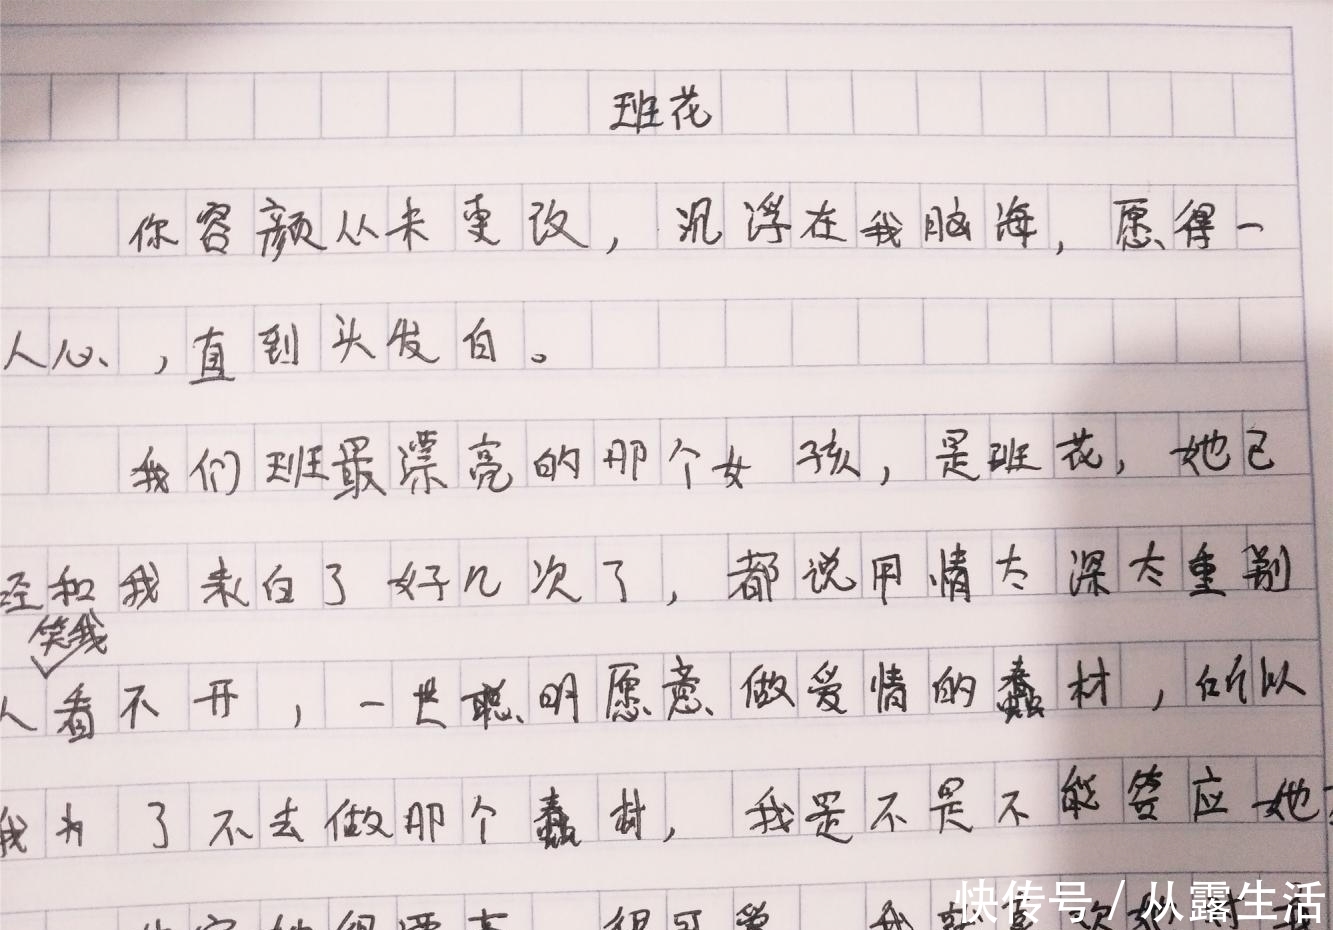 班花
你容颜从未变改，沉浮在我脑海，愿得一
人心，直到头发白。
我们班最漂亮的那个女孩，是班花，她已
经和我表白了好几次了，都说用情太深太重别
笑我
人看不开，一世聪明愿意做爱情的蠢材，所以
我为了不去做那个蠢材，我是不是不能答应她
她很漂亮 很可爱 我
快传号/从露生活